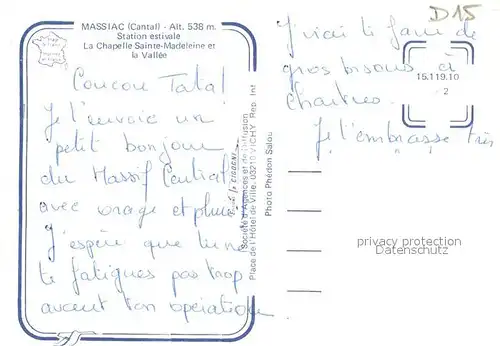 MASSIAC (Cantal) - Alt. 538 m.
Station estivale
La Chapelle Sainte-Madeleine et
la Vallée
Coucou Tata!
Je t'envoie un
petit bonjour
du Massif Central
avec orage et pluie
J'espère que tu ne
te fatigues pas trop
avant ton opération.
Société d'Agences et de Diffusion
Place de l'Hôtel de Ville, 03210 VICHY Rep. Int
Photo Phédon Salou
D15
J'irai te faire de
gros bisous à
Chartres.
Je t'embrasse très
15.119.10
2
privacy protection
Datenschutz